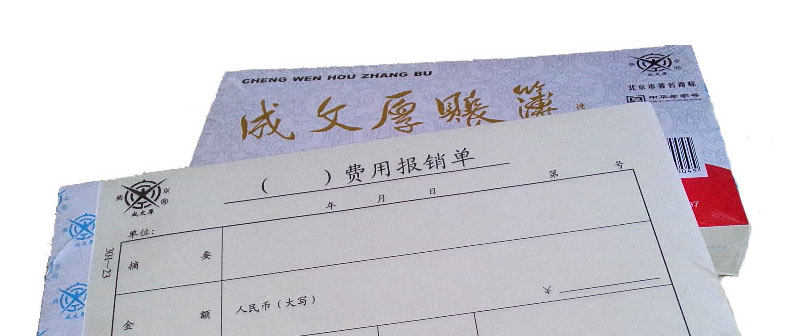 CHENG WEN HOU ZHANG BU
成文厚账簿
燕京
成文厚
北京市著名商标
中华老字号
燕京
成文厚
( )费用报销单
年 月 日
第 号
301—23
单位:
摘要
金额
人民币(大写)
¥